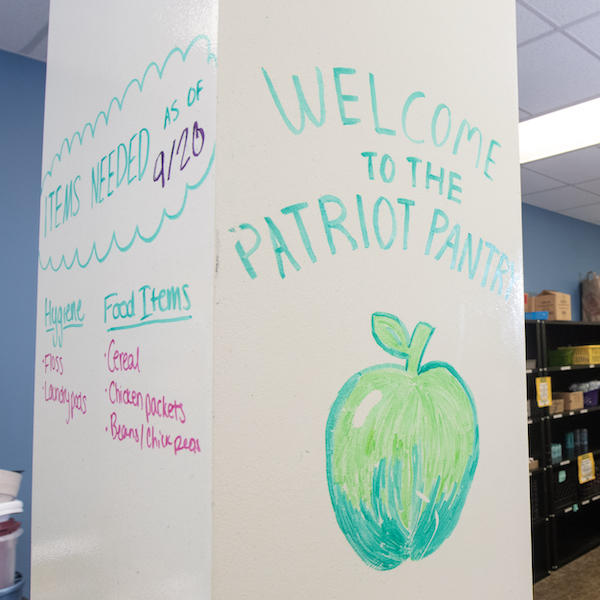 ITEMS NEEDED AS OF
9/20
Hygiene
• Floss
• Laundry pods
Food Items
• Cereal
• Chicken packets
• Beans/Chick peas
WELCOME
TO THE
PATRIOT PANTRY